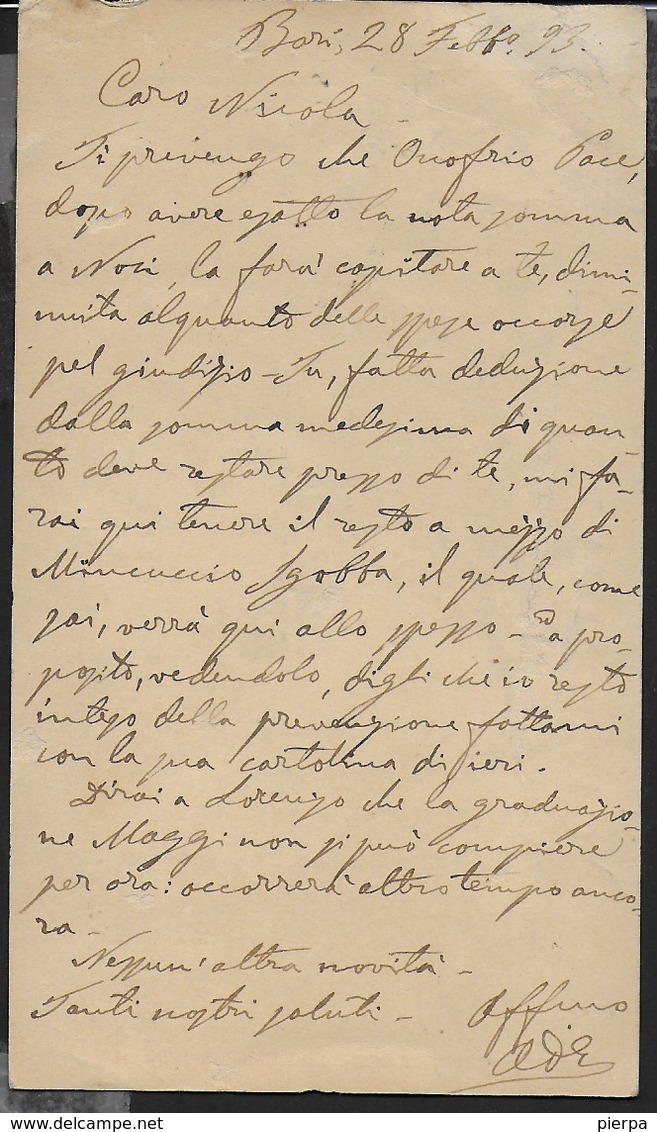 Bari, 28 Febb.º 93.
Caro Nicola
Ti prevengo che Onofrio Pace,
dopo avere esatto la nota somma
a Noci, la farà capitare a te, dimi-
nuita alquanto delle spese occorse
pel giudizio - Tu, fatta deduzione
dalla somma medesima di quan-
to deve restare presso di te, mi fa-
rai qui tenere il resto a mezzo di
Mincuccio Sgobba, il quale, come
sai, verrà qui allo spesso - a pro-
posito, vedendolo, digli che io resto
inteso della prevenzione fattami
con la sua cartolina di ieri.
Dirai a Lorenzo che la graduazio-
ne Maggi non si può compiere
per ora: occorrerà altro tempo anco-
ra -
Nessun'altra novità -
Tanti nostri saluti - Affmo
delcampe.net
pierpa